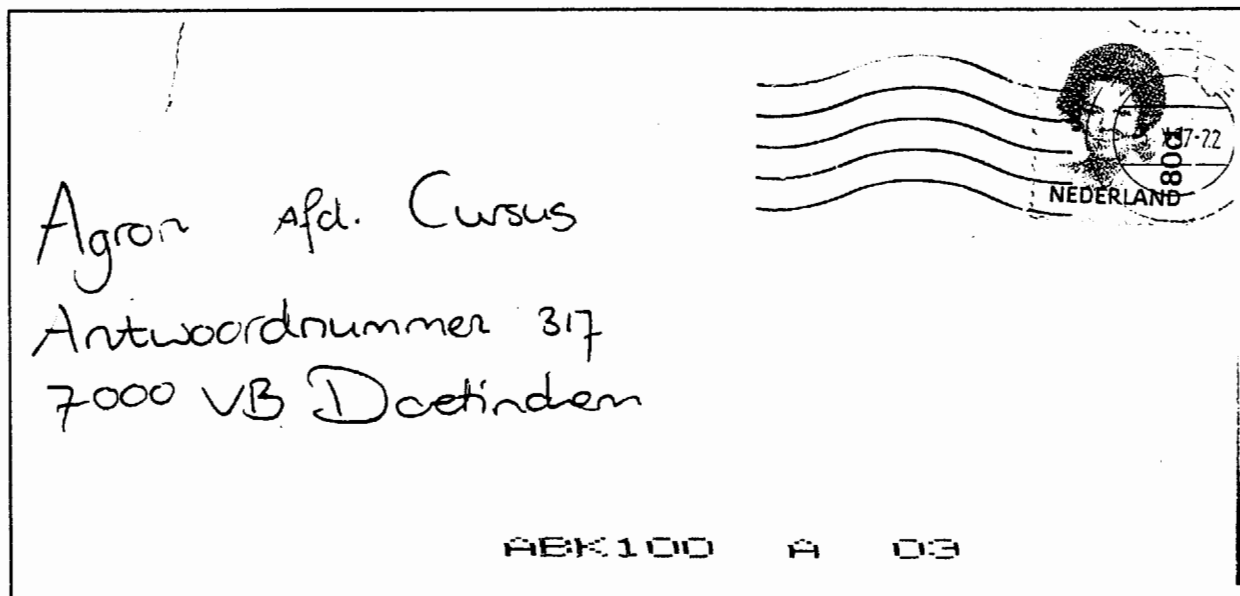 80ct
17-22
NEDERLAND
Agron Afd. Cursus
Antwoordnummer 317
7000 VB Doetinchem
ABK100 A 03